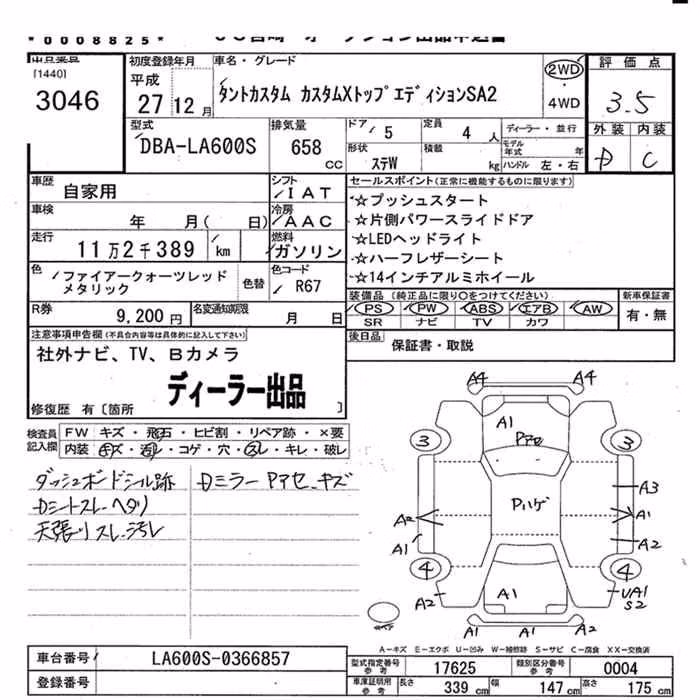 *0008825*
[1440]
3046
初度登録年月
平成
27 12月
車名・グレード
タントカスタム カスタムXトップエディションSA2
2WD
・
4WD
評価点
3.5
外装 内装
D C
型式
DBA-LA600S
排気量
658
CC
ドア 5
定員 4人
形状
ステW
積載
kg
ディーラー・並行
モデル年式 年
ハンドル 左・右
車歴
自家用
シフト
IAT
車検
年 月( 日)
冷房
AAC
走行
11万2千389 km
燃料
ガソリン
色
ファイアークォーツレッド
メタリック
色替
色コード
R67
R券
9,200円
名変通知期限
月 日
セールスポイント(正常に機能するものに限ります)
☆プッシュスタート
☆片側パワースライドドア
☆LEDヘッドライト
☆ハーフレザーシート
☆14インチアルミホイール
装備品(純正品に限り○をつけてください)
PS PW ABS エアB AW
SR ナビ TV カワ
新車保証書
有・無
後日品
保証書・取説
注意事項申告欄(不具合内容等は具体的に記入して下さい)
社外ナビ、TV、Bカメラ
ディーラー出品
修復歴 有〔箇所 〕
検査員
記入欄
FW キズ・飛石・ヒビ割・リペア跡・×要
内装 キズ・汚レ・コゲ・穴・スレ・キレ・破レ
ダッシュボードシール跡
Dシートスレ、ヘタリ
天張リスレ、汚レ
Dミラー Pアセ、キズ
A4 A4
A1
Pアセ
3 3
A3
Pハゲ
A2 A1
A1 A2
4 4
A2 A1 UA1
S2
A1 A1 A2
A-キズ E-エクボ U-凹み W-補修跡 S-サビ C-腐食 XX-交換済
車台番号
LA600S-0366857
登録番号
型式指定番号
参考
17625
類別区分番号
参考
0004
車庫証明用
参考
長さ 339cm
幅 147cm
高さ 175cm